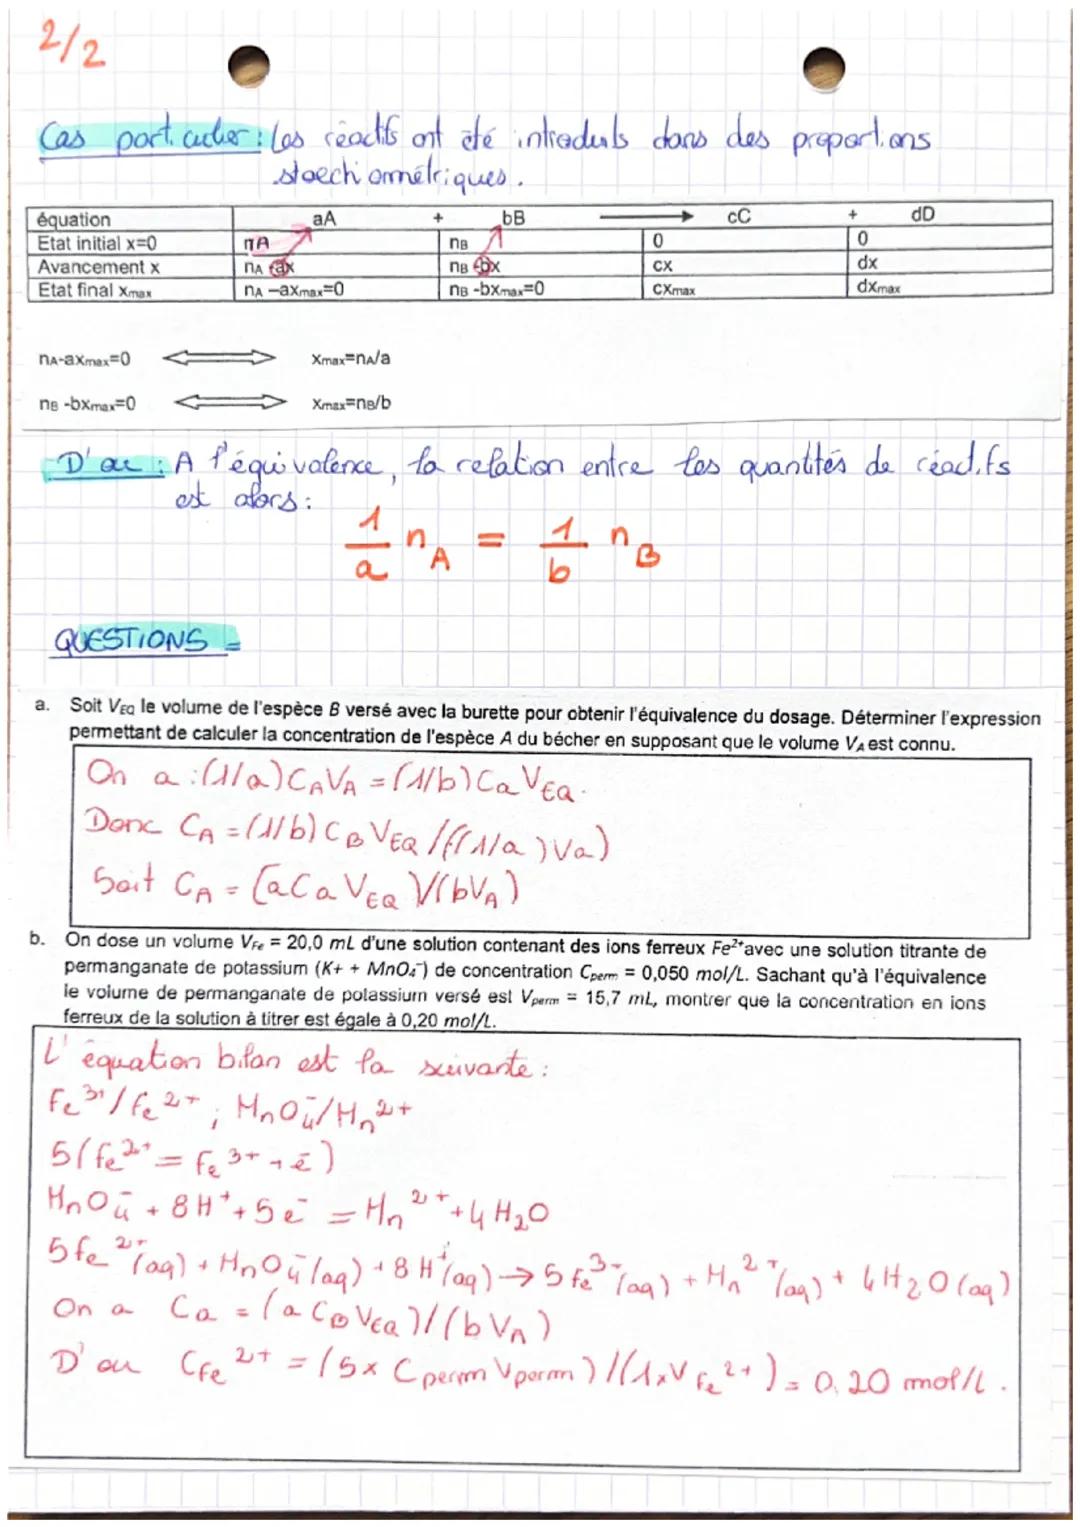 2/2
Cas particulier : Les réactifs ont été introduits dans des proportions
stoechiométriques.
équation aA + bB → cC + dD
Etat initial x=0 nA nB 0 0
Avancement x nA -ax nB -bx cx dx
Etat final xmax nA -axmax=0 nB -bxmax=0 cxmax dxmax
nA-axmax=0 ⟺ xmax=nA/a
nB -bxmax=0 ⟺ xmax=nB/b
D'où : A l'équivalence, la relation entre les quantités de réactifs
est alors :
1/a nA = 1/b nB
QUESTIONS =
a. Soit VEQ le volume de l'espèce B versé avec la burette pour obtenir l'équivalence du dosage. Déterminer l'expression
permettant de calculer la concentration de l'espèce A du bécher en supposant que le volume VA est connu.
On a : (1/a) CAVA = (1/b) Ca VEQ.
Donc CA = (1/b) CB VEQ /((1/a) Va)
Soit CA = (aCa VEQ)/(bVA)
b. On dose un volume VFe = 20,0 mL d'une solution contenant des ions ferreux Fe²⁺avec une solution titrante de
permanganate de potassium (K+ + MnO₄⁻) de concentration Cperm = 0,050 mol/L. Sachant qu'à l'équivalence
le volume de permanganate de potassium versé est Vperm = 15,7 mL, montrer que la concentration en ions
ferreux de la solution à titrer est égale à 0,20 mol/L.
L'équation bilan est la suivante :
Fe³⁺/Fe²⁺ ; MnO₄⁻/Mn²⁺
5(Fe²⁺ = Fe³⁺ + e⁻)
MnO₄⁻ + 8H⁺ + 5e⁻ = Mn²⁺ + 4H₂O
5Fe²⁺(aq) + MnO₄⁻(aq) + 8H⁺(aq) → 5Fe³⁺(aq) + Mn²⁺(aq) + 4H₂O(aq)
On a Ca = (a CB VEQ)/(b VA)
D'où CFe²⁺ = (5x Cperm Vperm)/(1xVFe²⁺) = 0,20 mol/L.